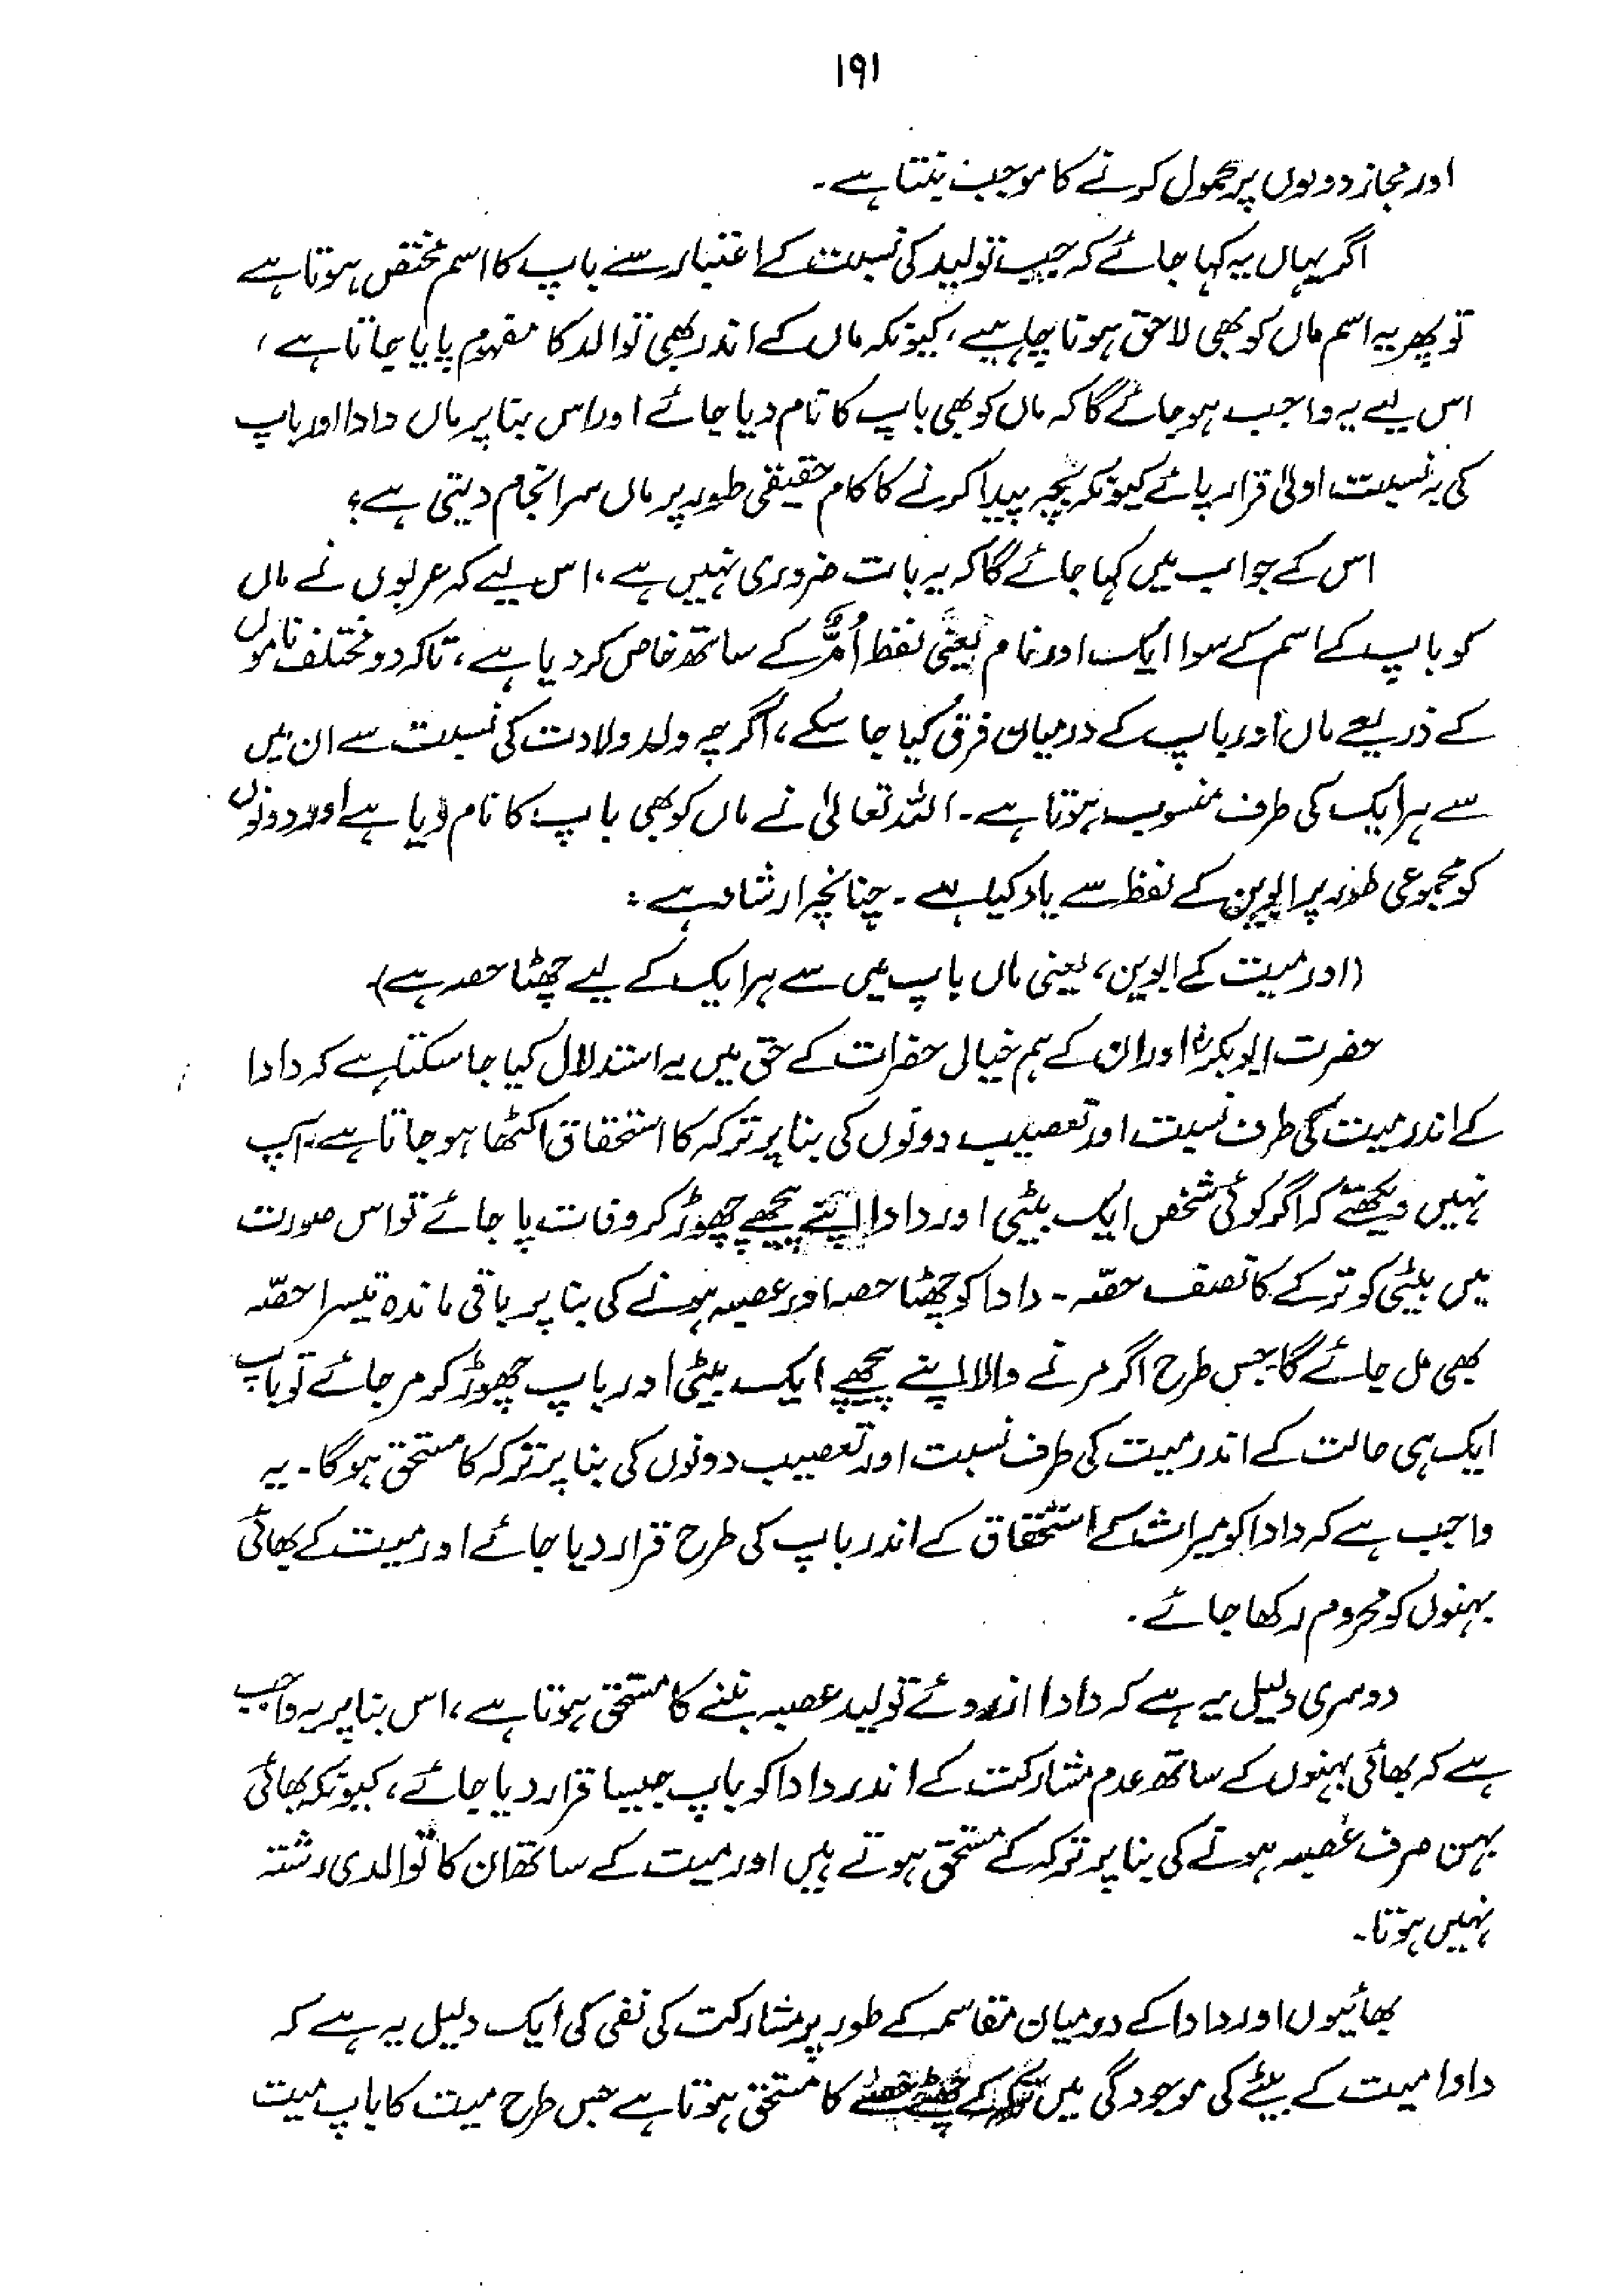 ۱۹۱
اور مجاز دونوں پر محمول کرنے کا موجب بنتا ہے۔
اگر یہاں یہ کہا جائے کہ جب تولید کی نسبت کے اعتبار سے باپ کا اسم مختص ہوتا ہے
تو پھر یہ اسم ماں کو بھی لاحق ہونا چاہیے، کیونکہ ماں کے اندر بھی توالد کا مفہوم پایا جاتا ہے،
اس لیے یہ واجب ہو جائے گا کہ ماں کو بھی باپ کا نام دیا جائے اور اس بنا پر ماں دادا اور باپ
کی بہ نسبت اولیٰ قرار پائے کیونکہ بچہ پیدا کرنے کا کام حقیقی طور پر ماں سرانجام دیتی ہے؟
اس کے جواب میں کہا جائے گا کہ یہ بات ضروری نہیں ہے، اس لیے کہ عربوں نے ماں
کو باپ کے اسم کے سوا ایک اور نام یعنی لفظ اُمٌّ کے ساتھ خاص کر دیا ہے، تاکہ دو مختلف ناموں
کے ذریعے ماں اور باپ کے درمیان فرق کیا جا سکے، اگرچہ ولد ولادت کی نسبت سے ان میں
سے ہر ایک کی طرف منسوب ہوتا ہے۔ اللہ تعالیٰ نے ماں کو بھی باپ کا نام دیا ہے اور دونوں
کو مجموعی طور پر ابوین کے لفظ سے یاد کیا ہے۔ چنانچہ ارشاد ہے:
(اور میت کے ابوین، یعنی ماں باپ میں سے ہر ایک کے لیے چھٹا حصہ ہے)۔
حضرت ابوبکرؓ اور ان کے ہم خیال حضرات کے حق میں یہ استدلال کیا جا سکتا ہے کہ دادا
کے اندر میت کی طرف نسبت اور تعصیب دونوں کی بنا پر ترکہ کا استحقاق اکٹھا ہو جاتا ہے، آپ
نہیں دیکھتے کہ اگر کوئی شخص ایک بیٹی اور دادا اپنے پیچھے چھوڑ کر وفات پا جائے تو اس صورت
میں بیٹی کو ترکے کا نصف حصّہ۔ دادا کو چھٹا حصہ اور عصبہ ہونے کی بنا پر باقی ماندہ تیسرا حصّہ
بھی مل جائے گا جس طرح اگر مرنے والا اپنے پیچھے ایک بیٹی اور باپ چھوڑ کر مر جائے تو باپ
ایک ہی حالت کے اندر میت کی طرف نسبت اور تعصیب دونوں کی بنا پر ترکہ کا مستحق ہوگا۔ یہ
واجب ہے کہ دادا کو میراث کے استحقاق کے اندر باپ کی طرح قرار دیا جائے اور میت کے بھائی
بہنوں کو محروم رکھا جائے۔
دوسری دلیل یہ ہے کہ دادا ازروئے تولید عصبہ بننے کا مستحق ہوتا ہے، اس بنا پر یہ واجب
ہے کہ بھائی بہنوں کے ساتھ عدم مشارکت کے اندر دادا کو باپ جیسا قرار دیا جائے، کیونکہ بھائی
بہن صرف عصبہ ہونے کی بنا پر ترکہ کے مستحق ہوتے ہیں اور میت کے ساتھ ان کا توالدی رشتہ
نہیں ہوتا۔
بھائیوں اور دادا کے درمیان مقاسمہ کے طور پر مشارکت کی نفی کی ایک دلیل یہ ہے کہ
دادا میت کے بیٹے کی موجودگی میں ترکہ کے چھٹے حصے کا مستحق ہوتا ہے جس طرح میت کا باپ میت